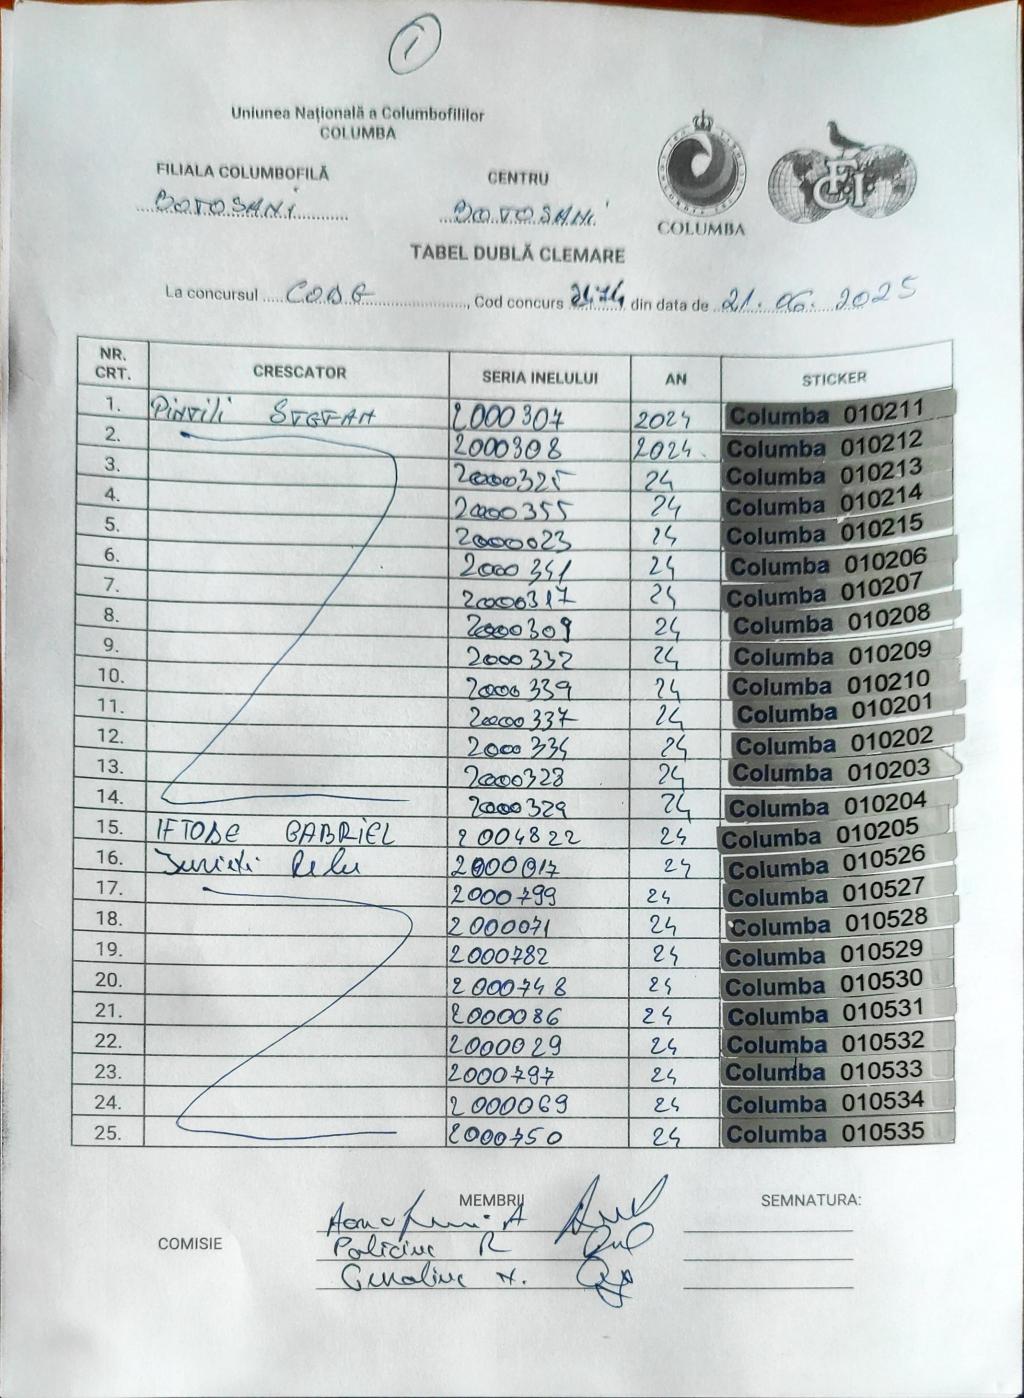 1
Uniunea Națională a Columbofililor
COLUMBA
FILIALA COLUMBOFILĂ
BOTOSANI
CENTRU
BOTOSANI
COLUMBA
FCI
TABEL DUBLĂ CLEMARE
La concursul CODG, Cod concurs 2474 din data de 21.06.2025
NR. CRT. CRESCATOR SERIA INELULUI AN STICKER
1. Pintili STEFAN 2000307 2024 Columba 010211
2. 2000308 2024 Columba 010212
3. 2000325 24 Columba 010213
4. 2000355 24 Columba 010214
5. 2000023 24 Columba 010215
6. 2000341 24 Columba 010206
7. 2000317 24 Columba 010207
8. 2000309 24 Columba 010208
9. 2000332 24 Columba 010209
10. 2000339 24 Columba 010210
11. 2000337 24 Columba 010201
12. 2000334 24 Columba 010202
13. 2000328 24 Columba 010203
14. 2000329 24 Columba 010204
15. IFTODE GABRIEL 2004822 24 Columba 010205
16. 2000017 24 Columba 010526
17. 2000799 24 Columba 010527
18. 2000071 24 Columba 010528
19. 2000782 24 Columba 010529
20. 2000748 24 Columba 010530
21. 2000086 24 Columba 010531
22. 2000029 24 Columba 010532
23. 2000797 24 Columba 010533
24. 2000069 24 Columba 010534
25. 2000750 24 Columba 010535
MEMBRII
SEMNATURA:
COMISIE
A
R
N.